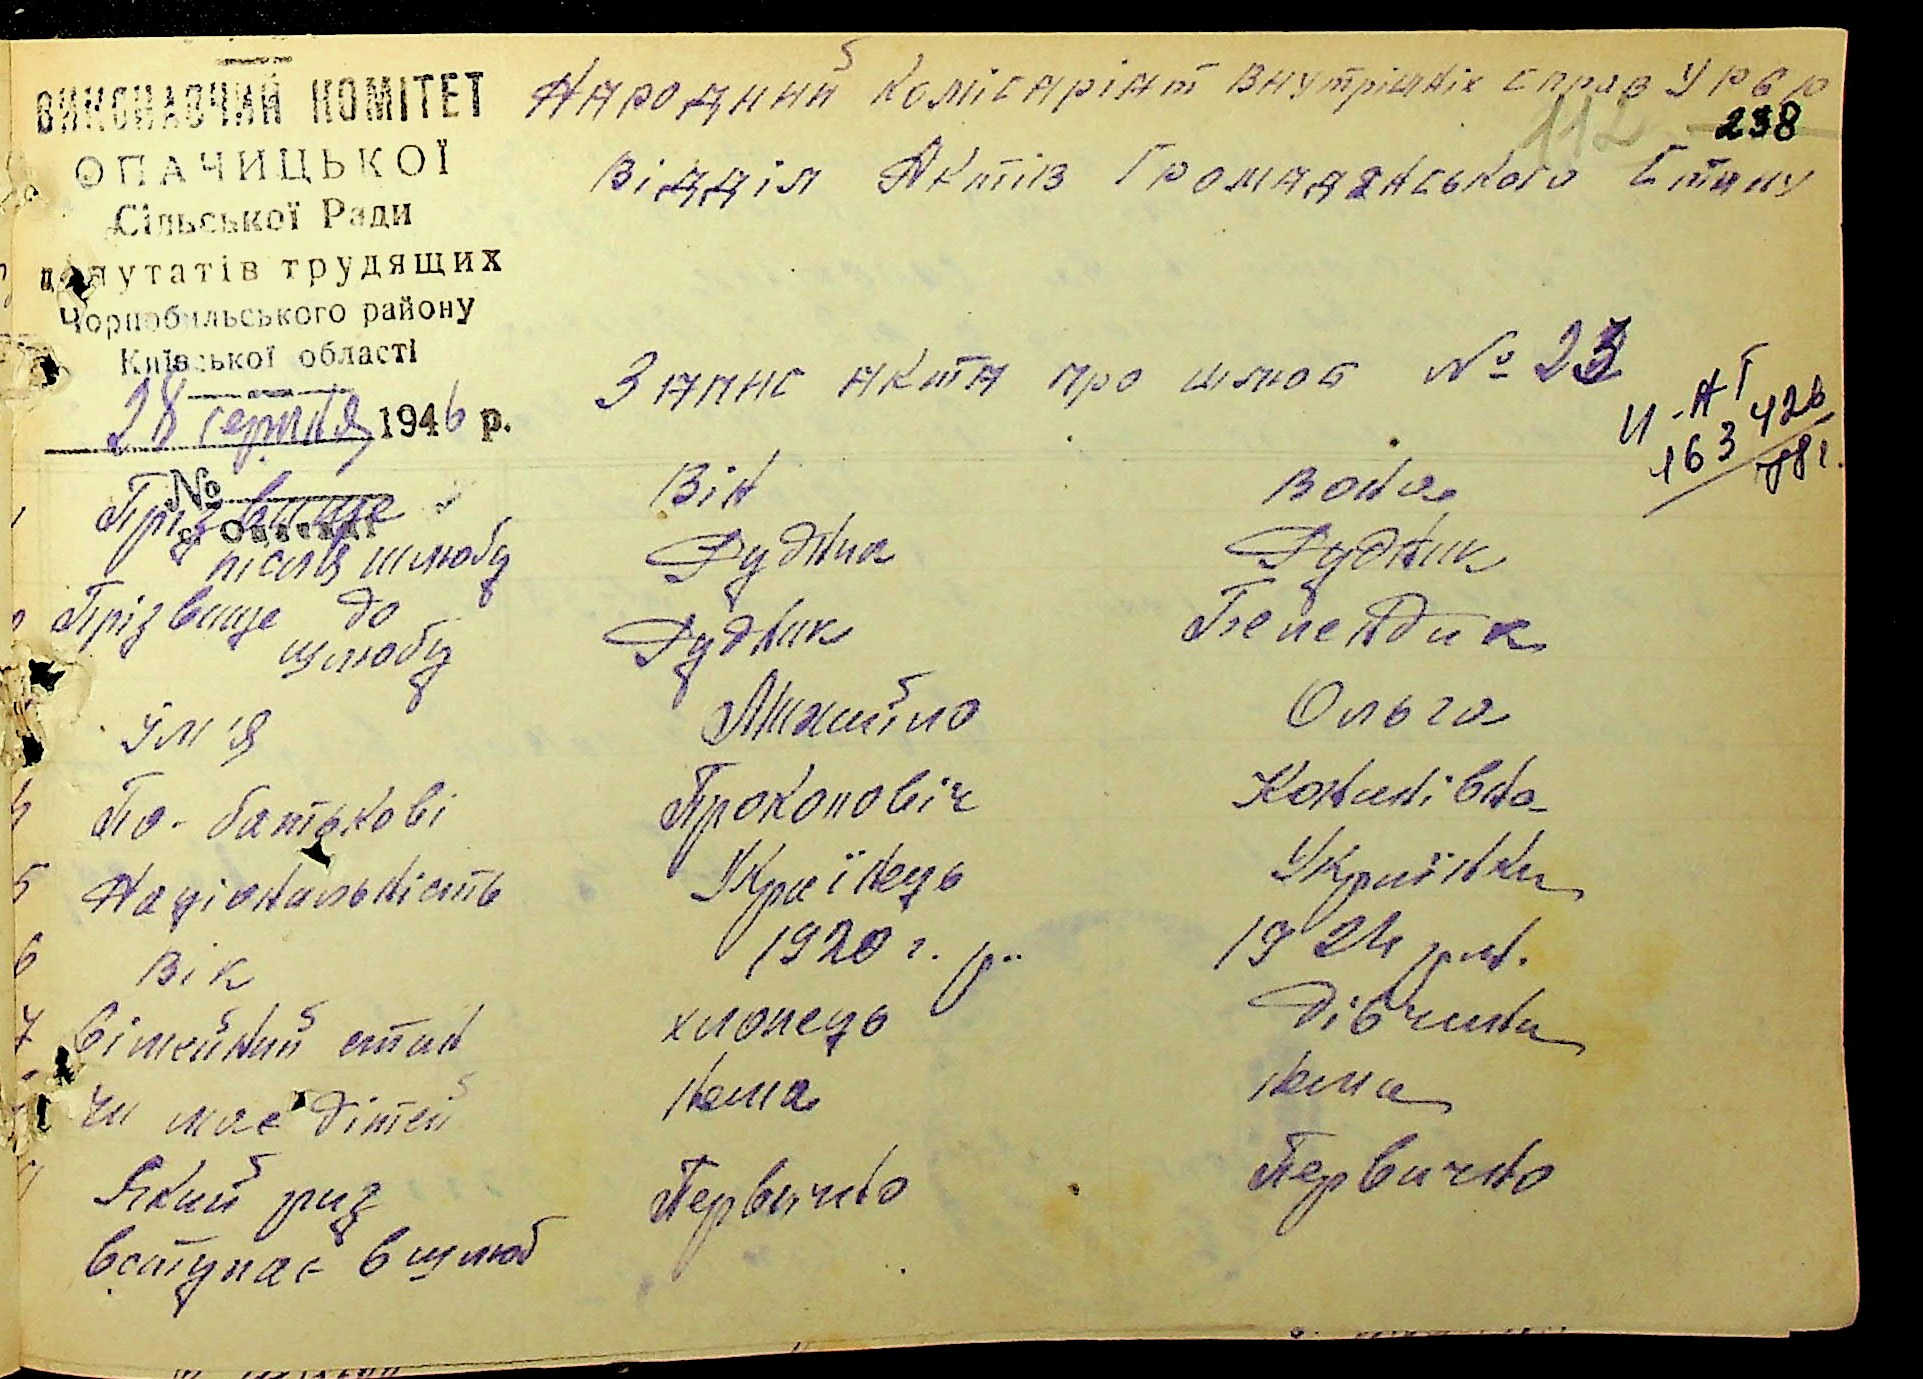 ВИКОНАВЧИЙ КОМІТЕТ
ОПАЧИЦЬКОЇ
Сільської Ради
депутатів трудящих
Чорнобильського району
Київської області
28 серпня 1946 р.
№
Народний Комісаріат Внутрішніх Справ УРСР
112 238
Відділ Актів Громадянського Стану
Запис акта про шлюб № 23
ІІ-АГ
163 426
Прізвище Він Вона
після шлюбу Рудник Рудник
Прізвище до Рудник
шлюбу
Ім'я Михайло Ольга
4 По-батькові Прокоповіч
5 Національність Українець Українка
6 Вік 1920 г. р. 1924 р.н.
7 Сімейний стан хлопець дівчина
Чи має дітей нема нема
Який раз Первично Первично
вступає в шлюб